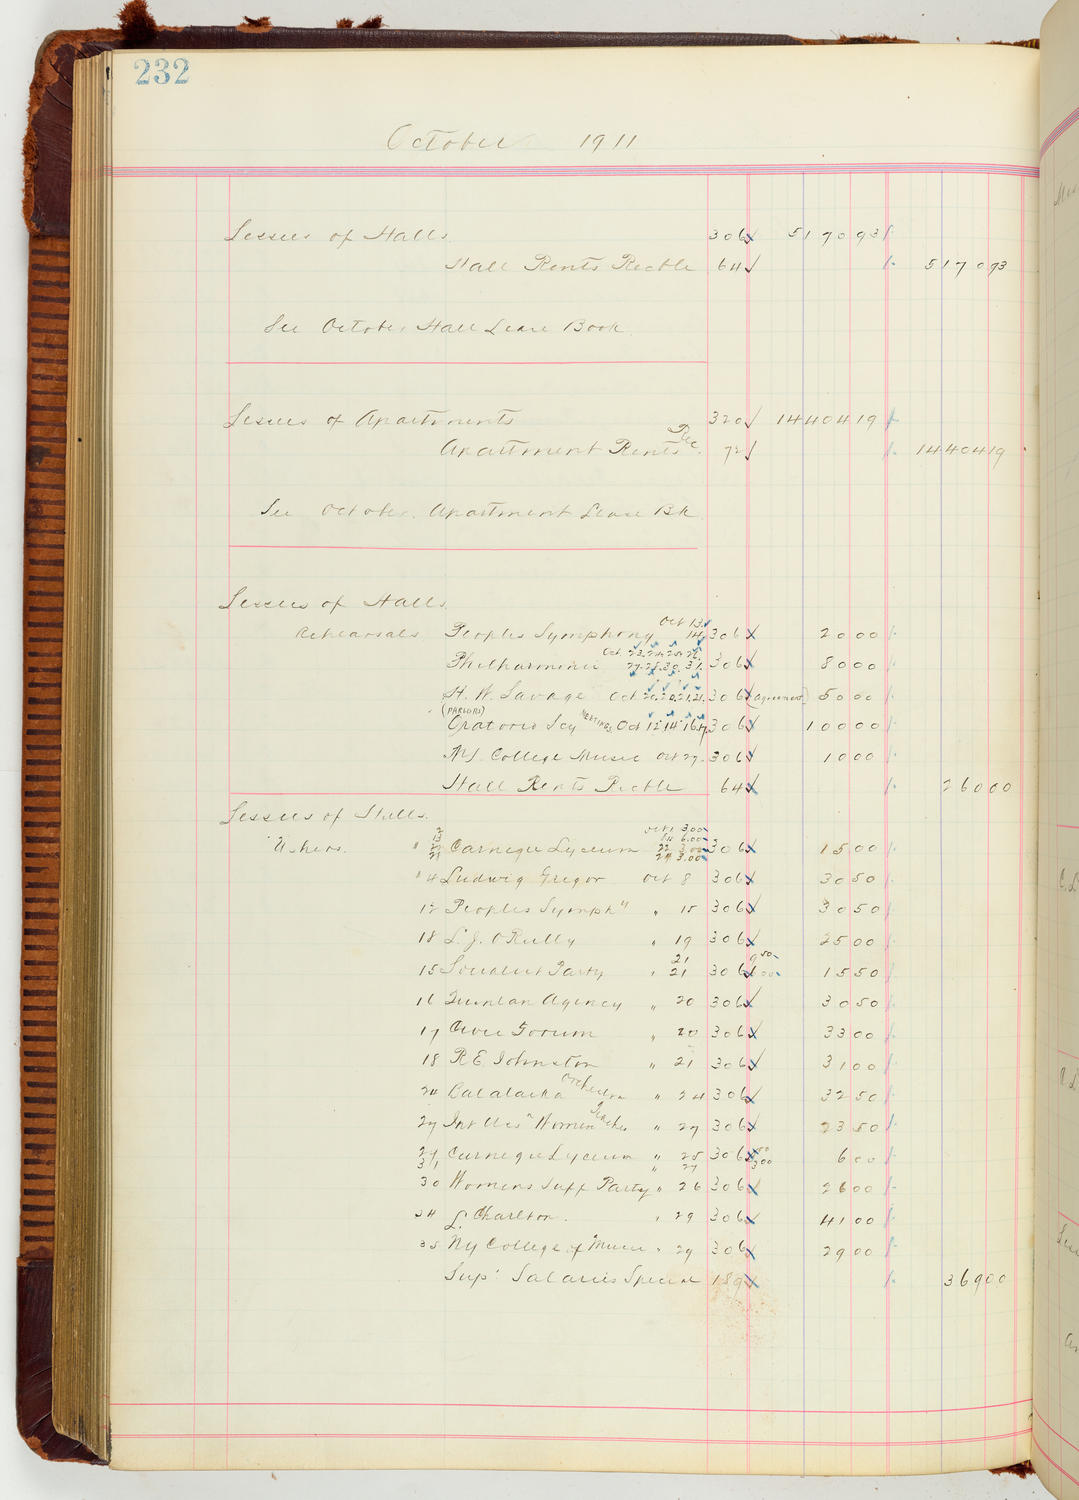 232
October 1911
Lessees of Halls 306 5170 93
Hall Rents Recble 64 5170 93
See October Hall Lease Book
Lessees of Apartments 320 14404 19
Apartment Rents Rec. 72 14404 19
See October Apartment Lease Bk
Lessees of Halls
Rehearsals Peoples Symphony Oct 13. 14. 306 20 00
Philharmonic Oct. 23. 24. 25. 26. 27. 28. 30. 31. 306 80 00
H. W. Savage Oct 20. 20. 21. 21. 306 (agreement) 50 00
(PARLORS)
Oratorio Scy MEETINGS Oct 12 14 16 17. 306 100 00
NY. College Music Oct 27. 306 10 00
Hall Rents Recble 64 260 00
Lessees of Halls.
Ushers. Carnegie Lyceum Oct 1 3.00 14 6.00 22 3.00 24 3.00 306 15 00
" 4 Ludwig Gregor Oct 8 306 30 50
12 Peoples Symphy " 15 306 30 50
18 L. J. O'Reilly " 19 306 25 00
15 Socialist Party " 21 21 306 15 50
16 Quinlan Agency " 20 306 30 50
17 Civic Forum " 20 306 33 00
18 R. E. Johnston " 21 306 31 00
24 Balalaika Orchestra " 24 306 32 50
27 Int Women " 27 306 23 50
27 31 Carnegie Lyceum " 25 " 27 306 3 00 6 00
30 Womens Suff Party " 26 306 26 00
34 L. Charlton. " 29 306 41 00
35 NY College of Music " 29 306 29 00
Sup' Salaries Special 189 369 00